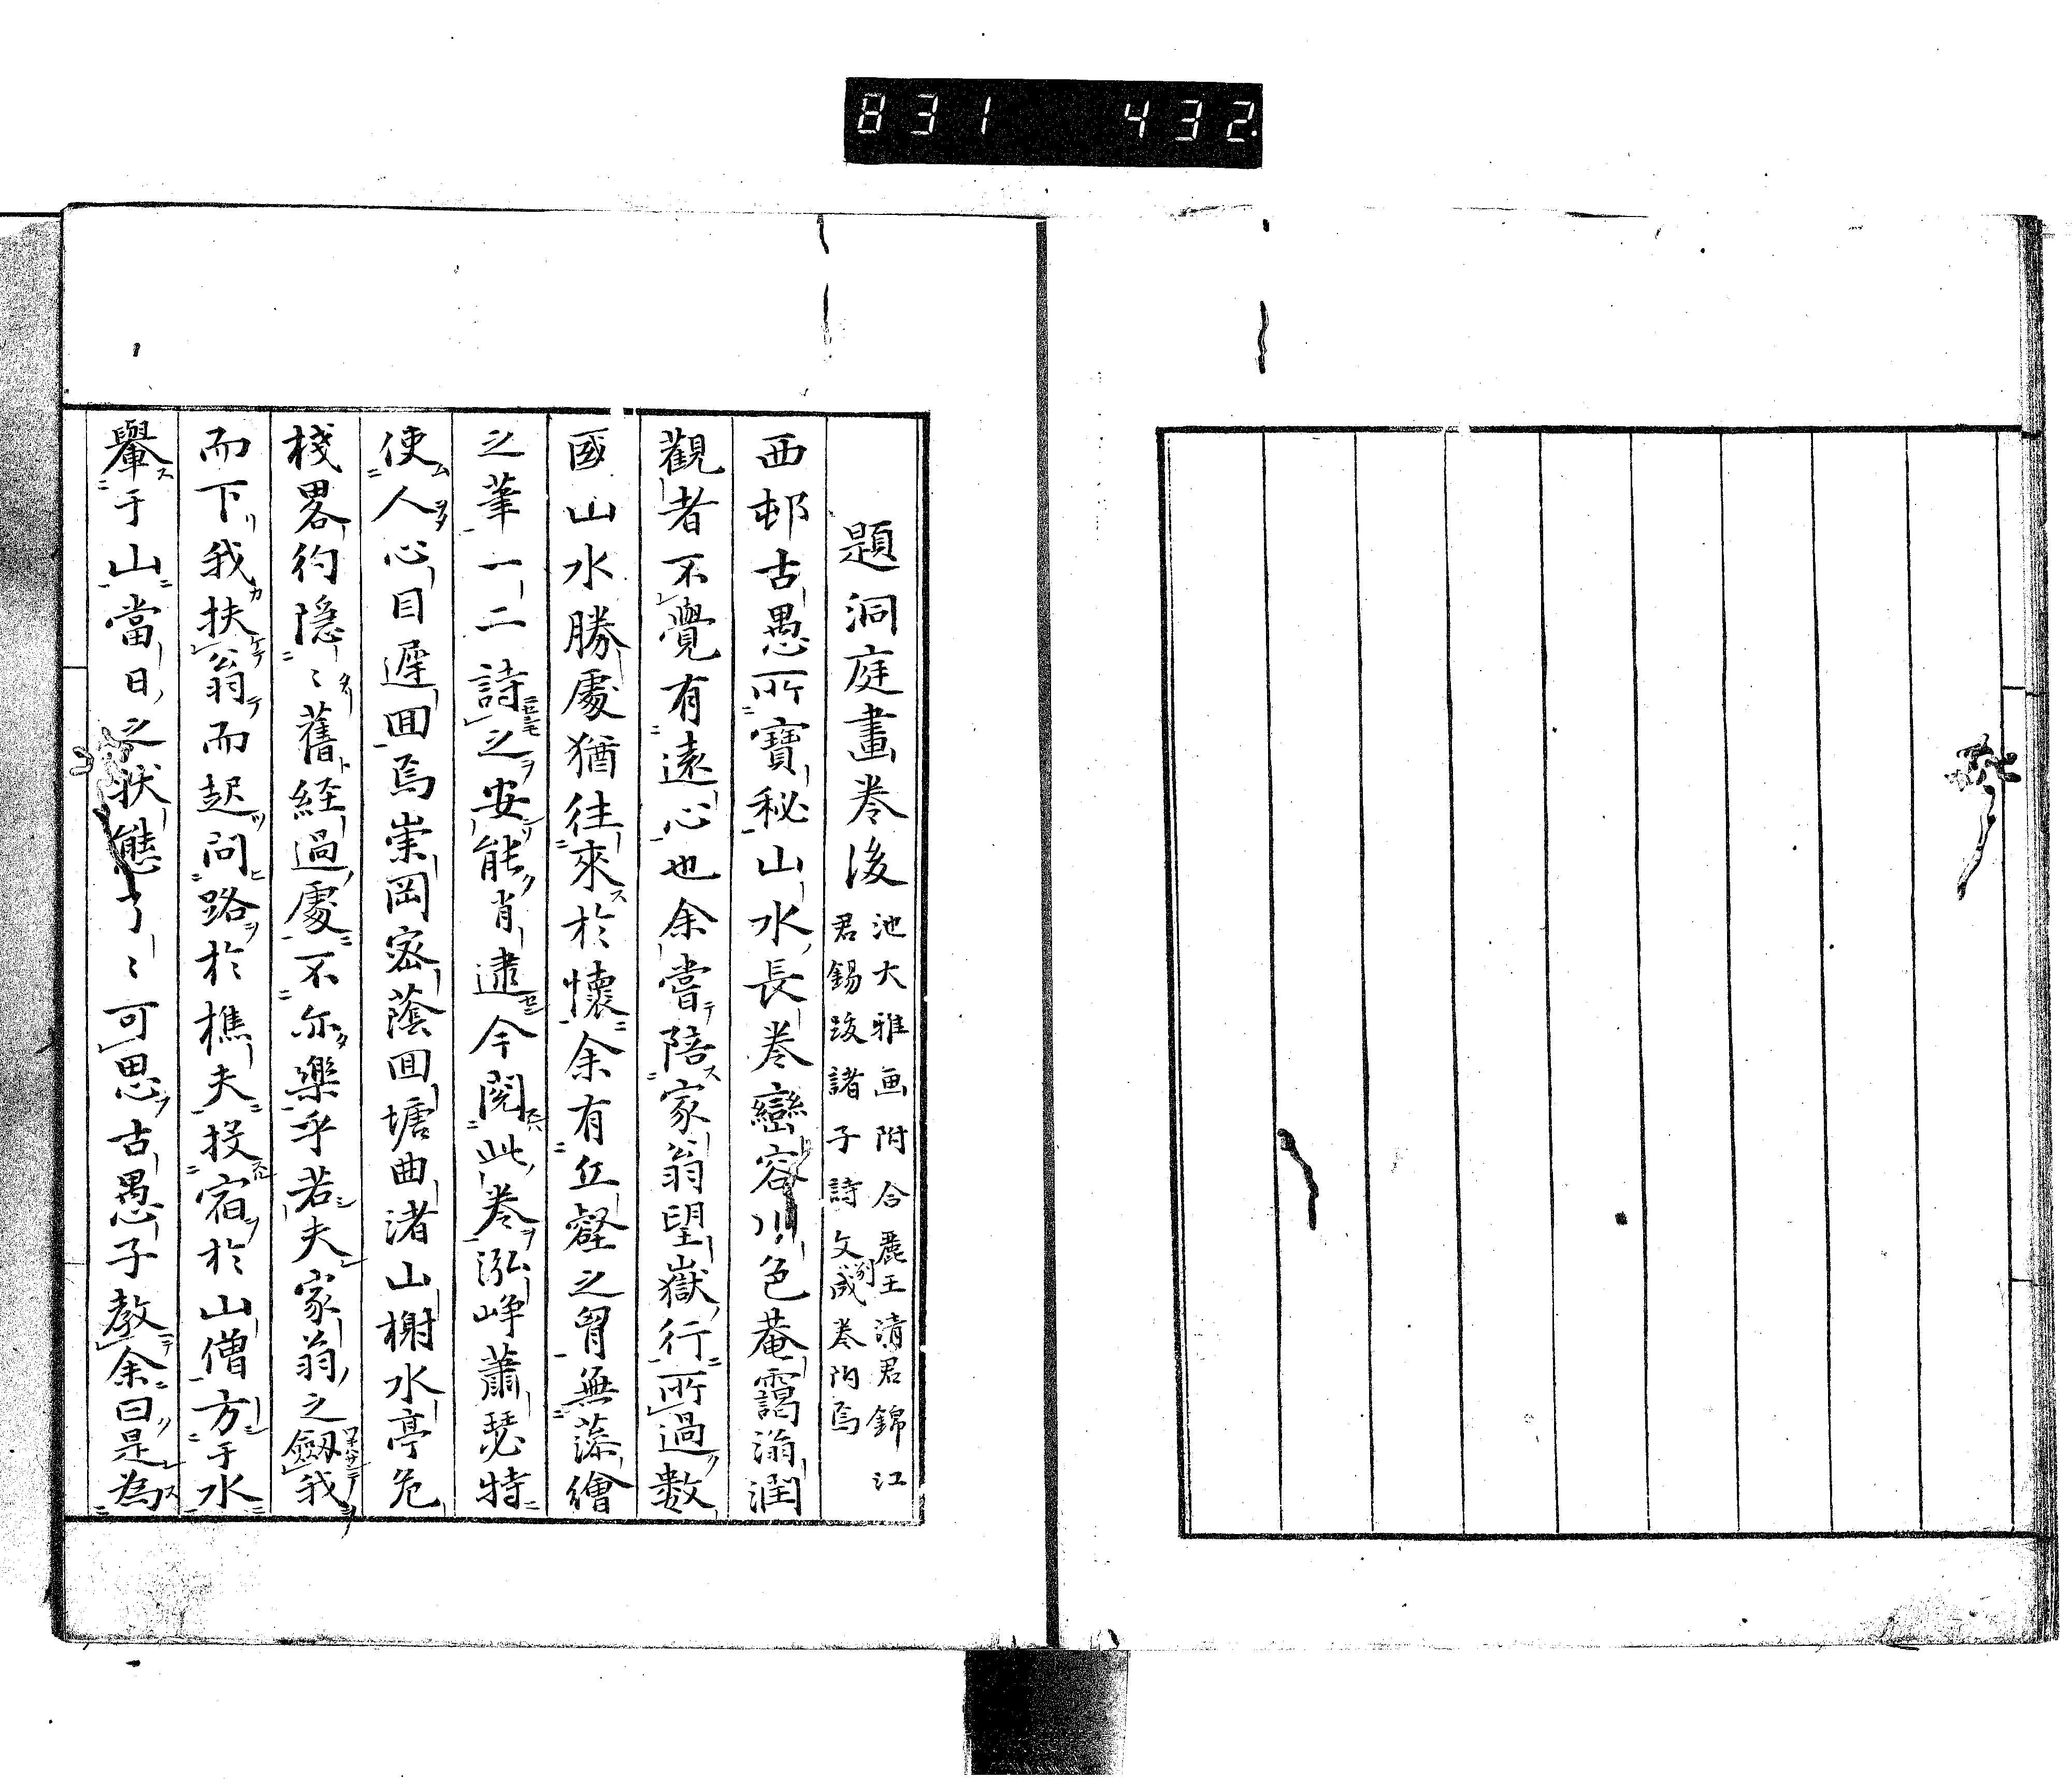 831 432
題洞庭畫卷後 池大雅画附合麗王清君錦江
君錫跋諸子詩文別成卷附焉
西邨古愚所寶秘山水長卷巒容川色菴靄滃潤
觀者不覺有遠心也余嘗陪家翁望嶽行所過數
國山水勝處猶往來於懷余有丘壑之胃無藻繪
之筆一二詩之安能肖逮今閱此卷泓崢蕭瑟特
使人心目遲囬焉崇岡密蔭囬塘曲渚山榭水亭危
棧畧彴隠〻舊経過處不亦樂乎若夫家翁之劔我
而下我扶翁而起問路於樵夫投宿於山僧方于水
轝于山當日之状態了〻可思古愚子教余曰是為